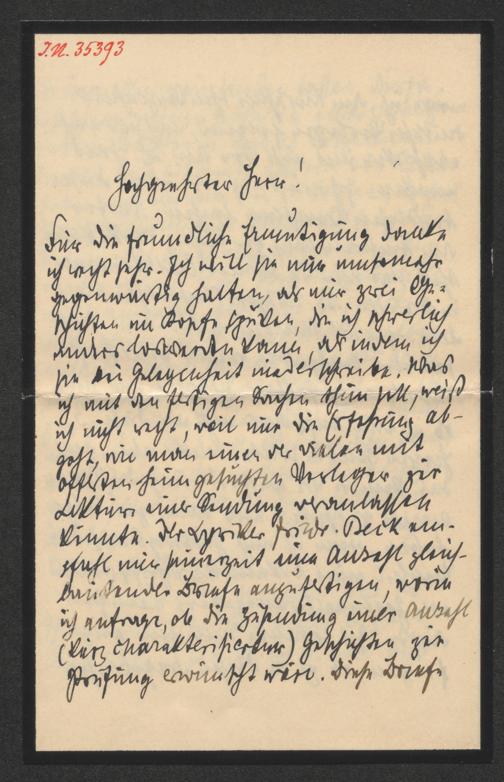 I.N. 35393
Hochgeehrter Herr!
Für die freundliche Ermutigung danke
ich recht sehr. Ich will sie mir umsomehr
gegenwärtig halten, als mir zwei Ge-
schichten im Kopfe spuken, die ich schwerlich
anders loswerden kann, als indem ich
sie bei Gelegenheit niederschreibe. Was
ich mit den fertigen Sachen thun soll, weiß
ich nicht recht, weil mir die Erfahrung ab-
geht, wie man einen der vielen mit
heimgesuchten Verleger zur
Lektüre einer Sendung veranlassen
könnte. Der Lyriker Friedr. Beck em-
pfahl mir seinerzeit eine Anzahl gleich-
lautender Briefe anzufertigen, worin
ich anfrage, ob die Zusendung einer Anzahl
(kurz charakterisierter) Geschichten zur
Prüfung erwünscht wäre. Diese Briefe